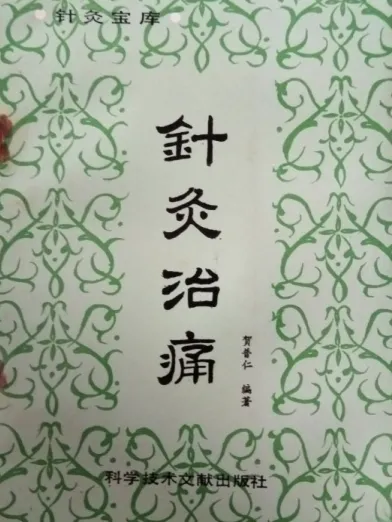 针灸宝库
針灸治痛
贺普仁 编著
科学技术文献出版社